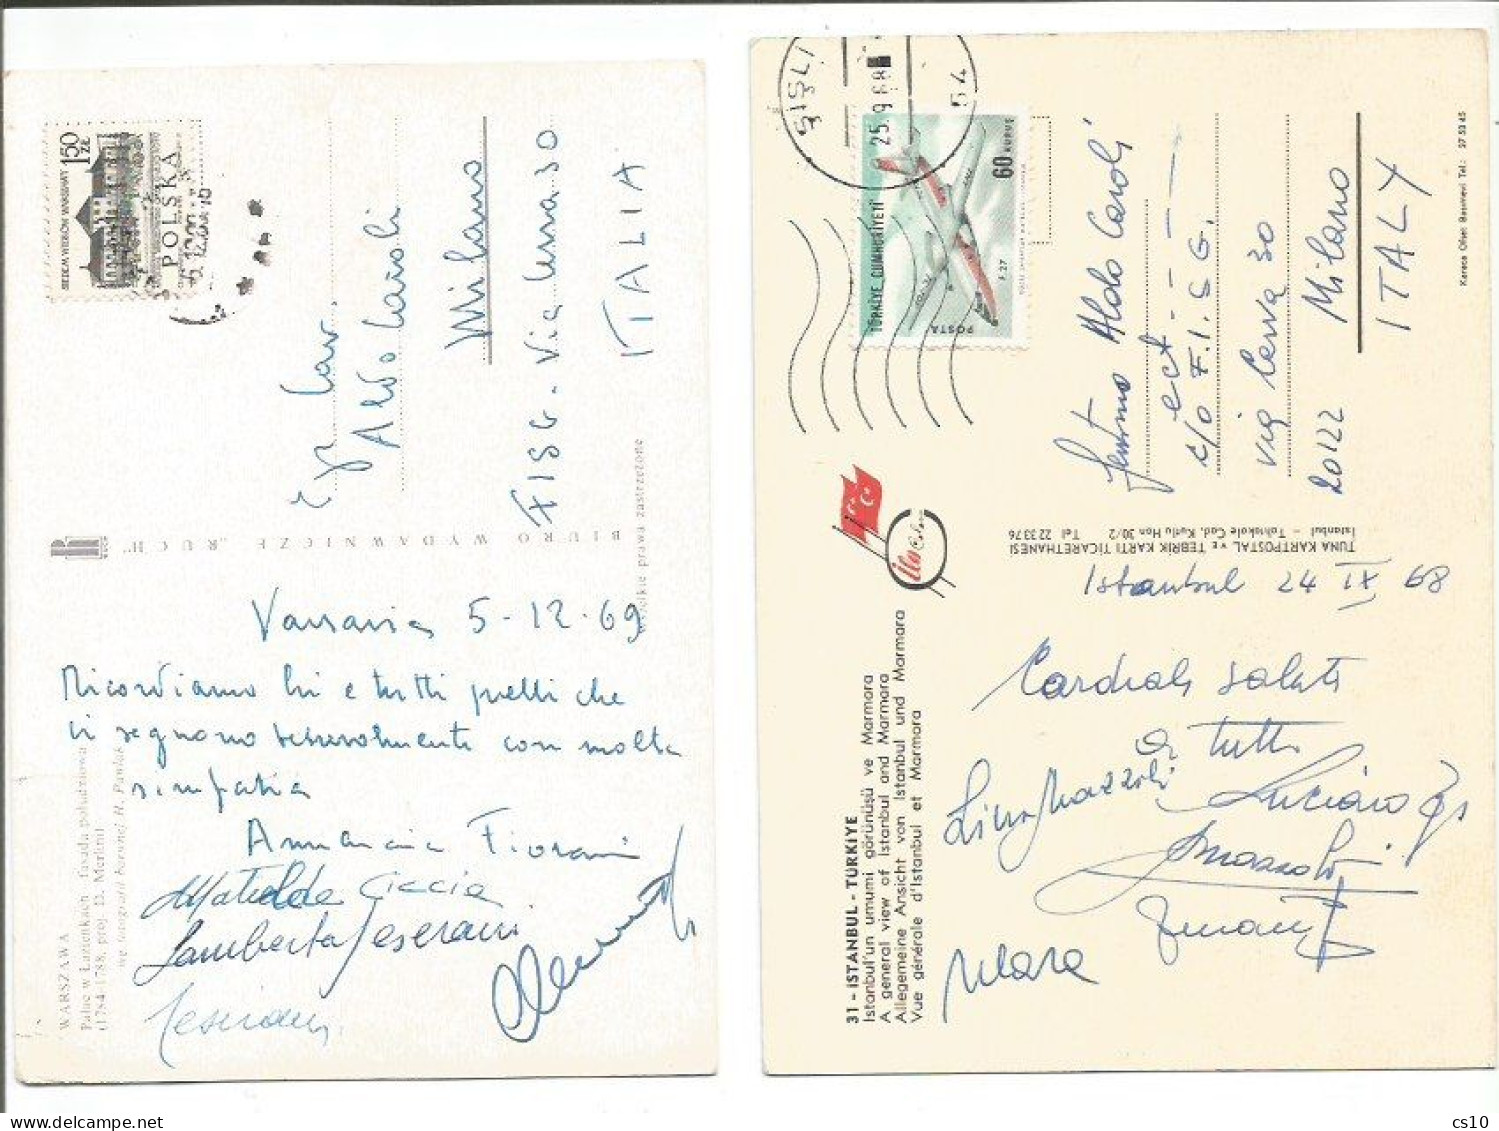 1.50 ZŁ
POLSKA
SIEDEM WIEKÓW WARSZAWY
Egr. Cav.
Aldo Caroli
Milano
ITALIA
BIURO WYDAWNICZE „RUCH"
RUCH
Wszelkie prawa zastrzeżone
Varsavia 5-12-69
Ricordiamo lei e tutti quelli che
ci seguono con molta
simpatia
Fiorani
Matilde Ciccia
Lamberto Jeserani
Jeserani
WARSZAWA
Pałac w Łazienkach - fasada południowa
(1784-1788, proj. D. Merlini)
wg fotografii barwnej H.
ŞİŞLİ
25.9.68
54
TÜRKİYE CUMHURİYETİ
60 KURUŞ
POSTA
F.27
Aldo Caroli
ect - - - -
c/o F.I.S.G.
via Cerva 30
20122 Milano
ITALY
Karaca Ofset Basımevi Tel.: 27 53 45
TUNA KARTPOSTAL ve TEBRİK KARTI TİCARETHANESİ
İstanbul - Tahtakale Cad. Kutlu Han 30/2 Tel 22 33 76
Istanbul 24 IX 68
Cordiali saluti
a tutti
Luciano
Mara
31 - İSTANBUL - TÜRKİYE
Istanbul'un umumi görünüşü ve Marmara
A general view of Istanbul and Marmara
Allegemeine Ansicht von Istanbul und Marmara
Vue générale d'Istanbul et Marmara
cs10